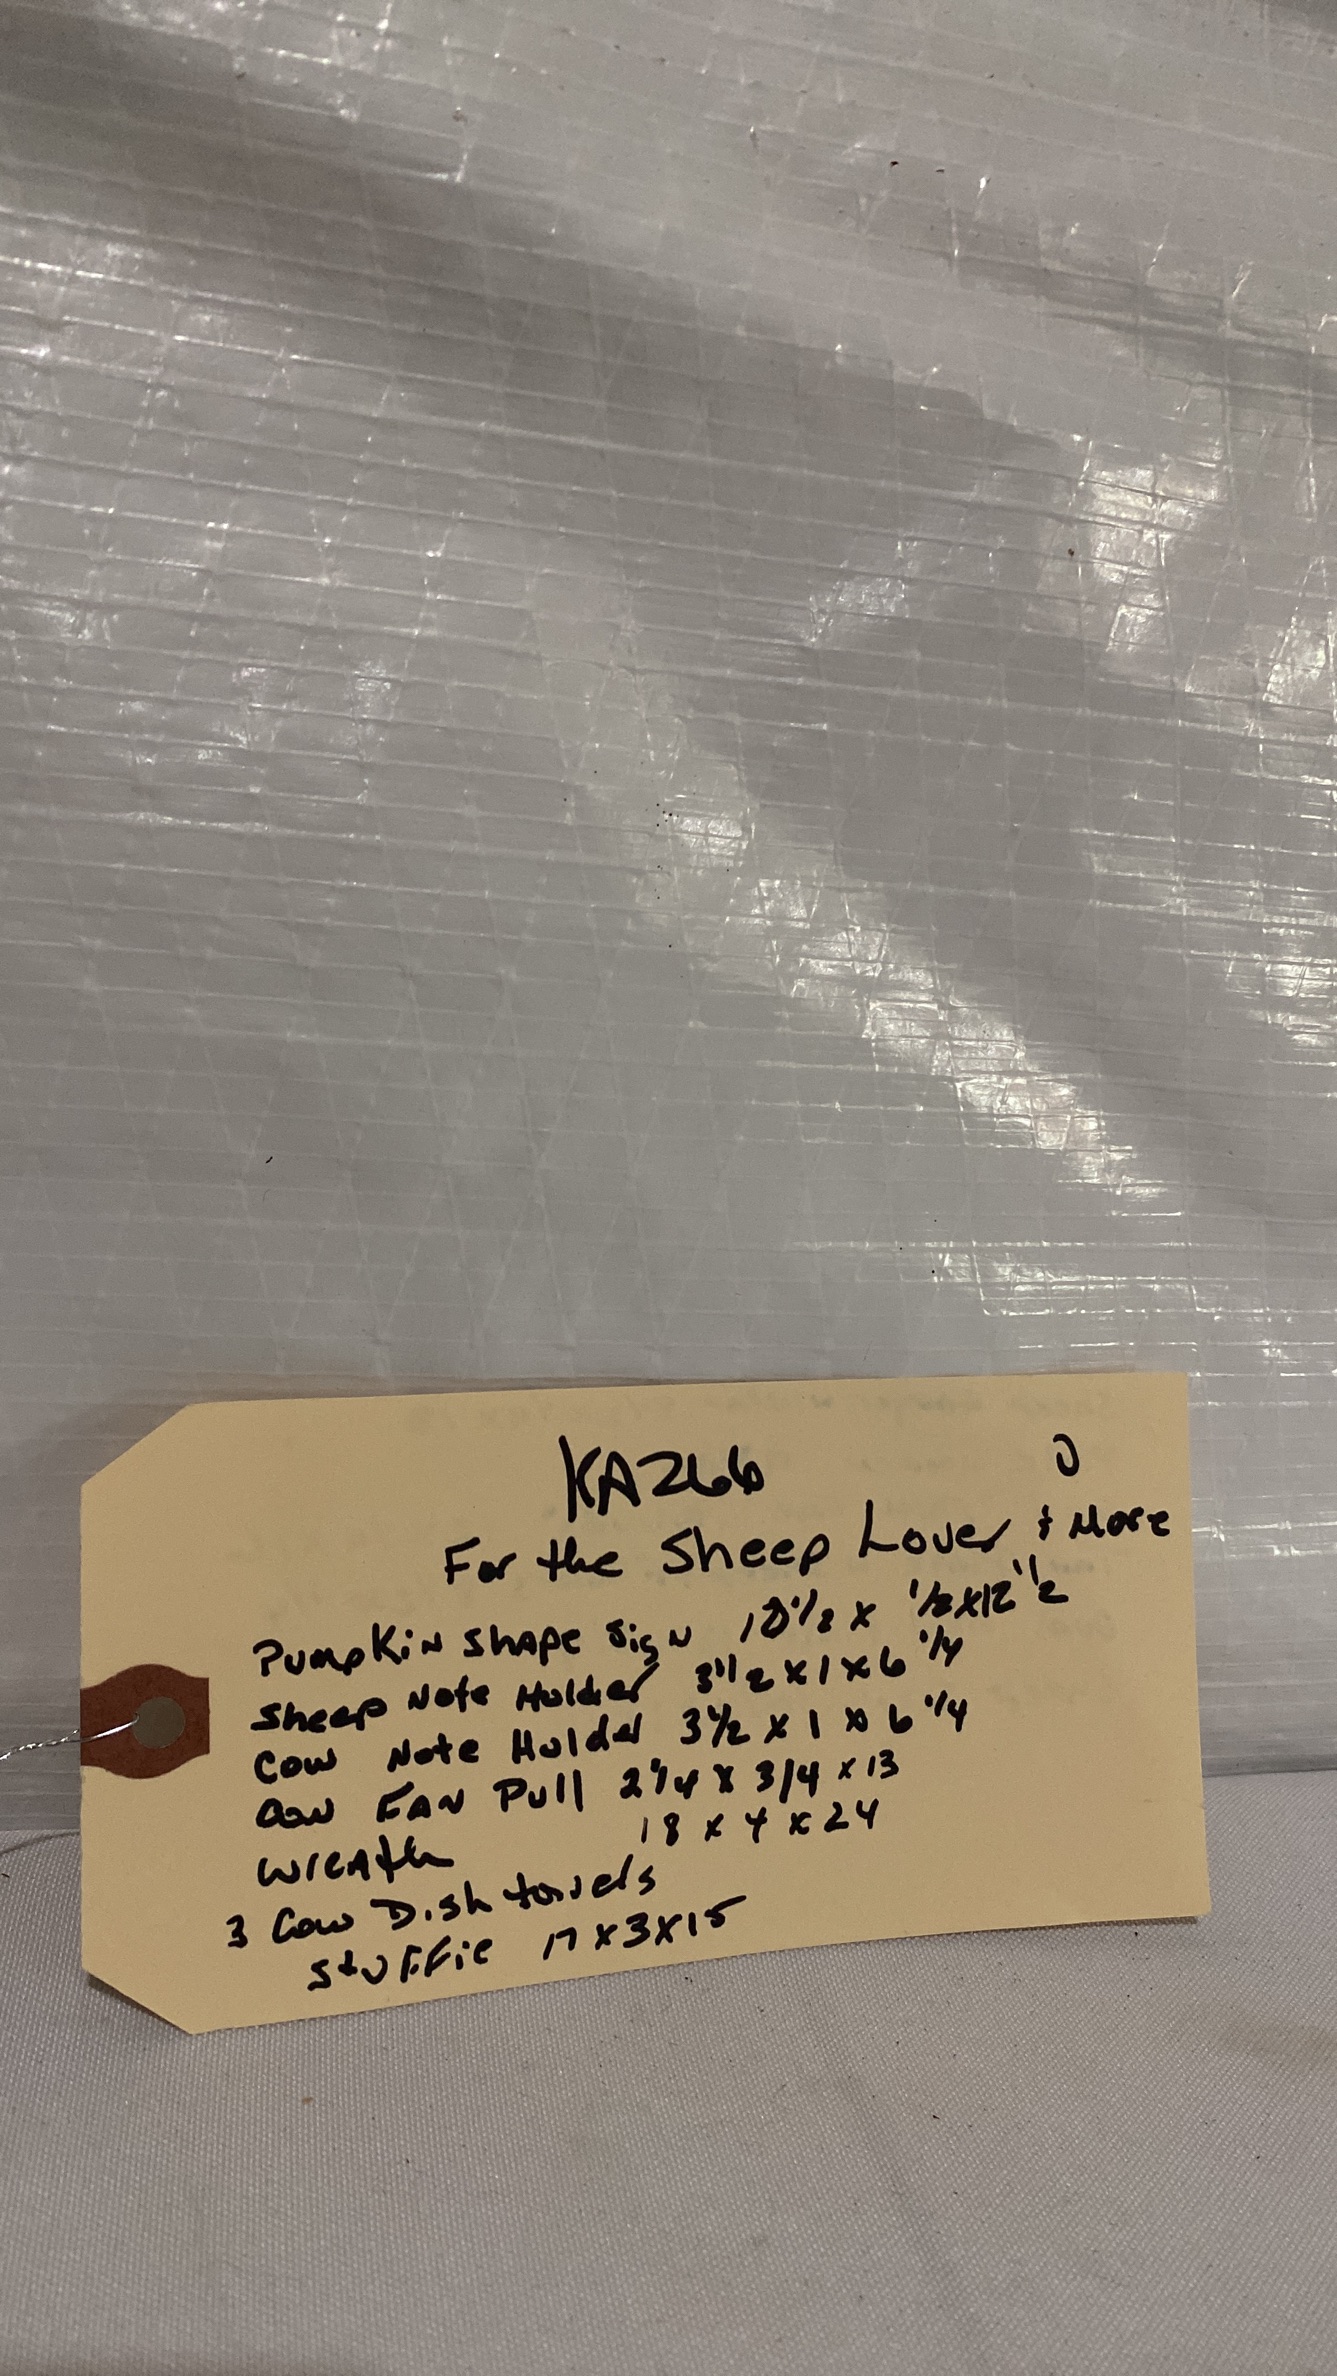 KA266 O
For the Sheep Lover + More
Pumpkin shape Sign 10 1/2 x 1/2 x 12 1/2
Sheep Note Holder 3 1/2 x 1 x 6 1/4
Cow Note Holder 3 1/2 x 1 x 6 1/4
Cow FAN Pull 2 1/4 x 3/4 x 13
Wreath 18 x 4 x 24
3 Cow Dish towels
Stuffie 17 x 3 x 15